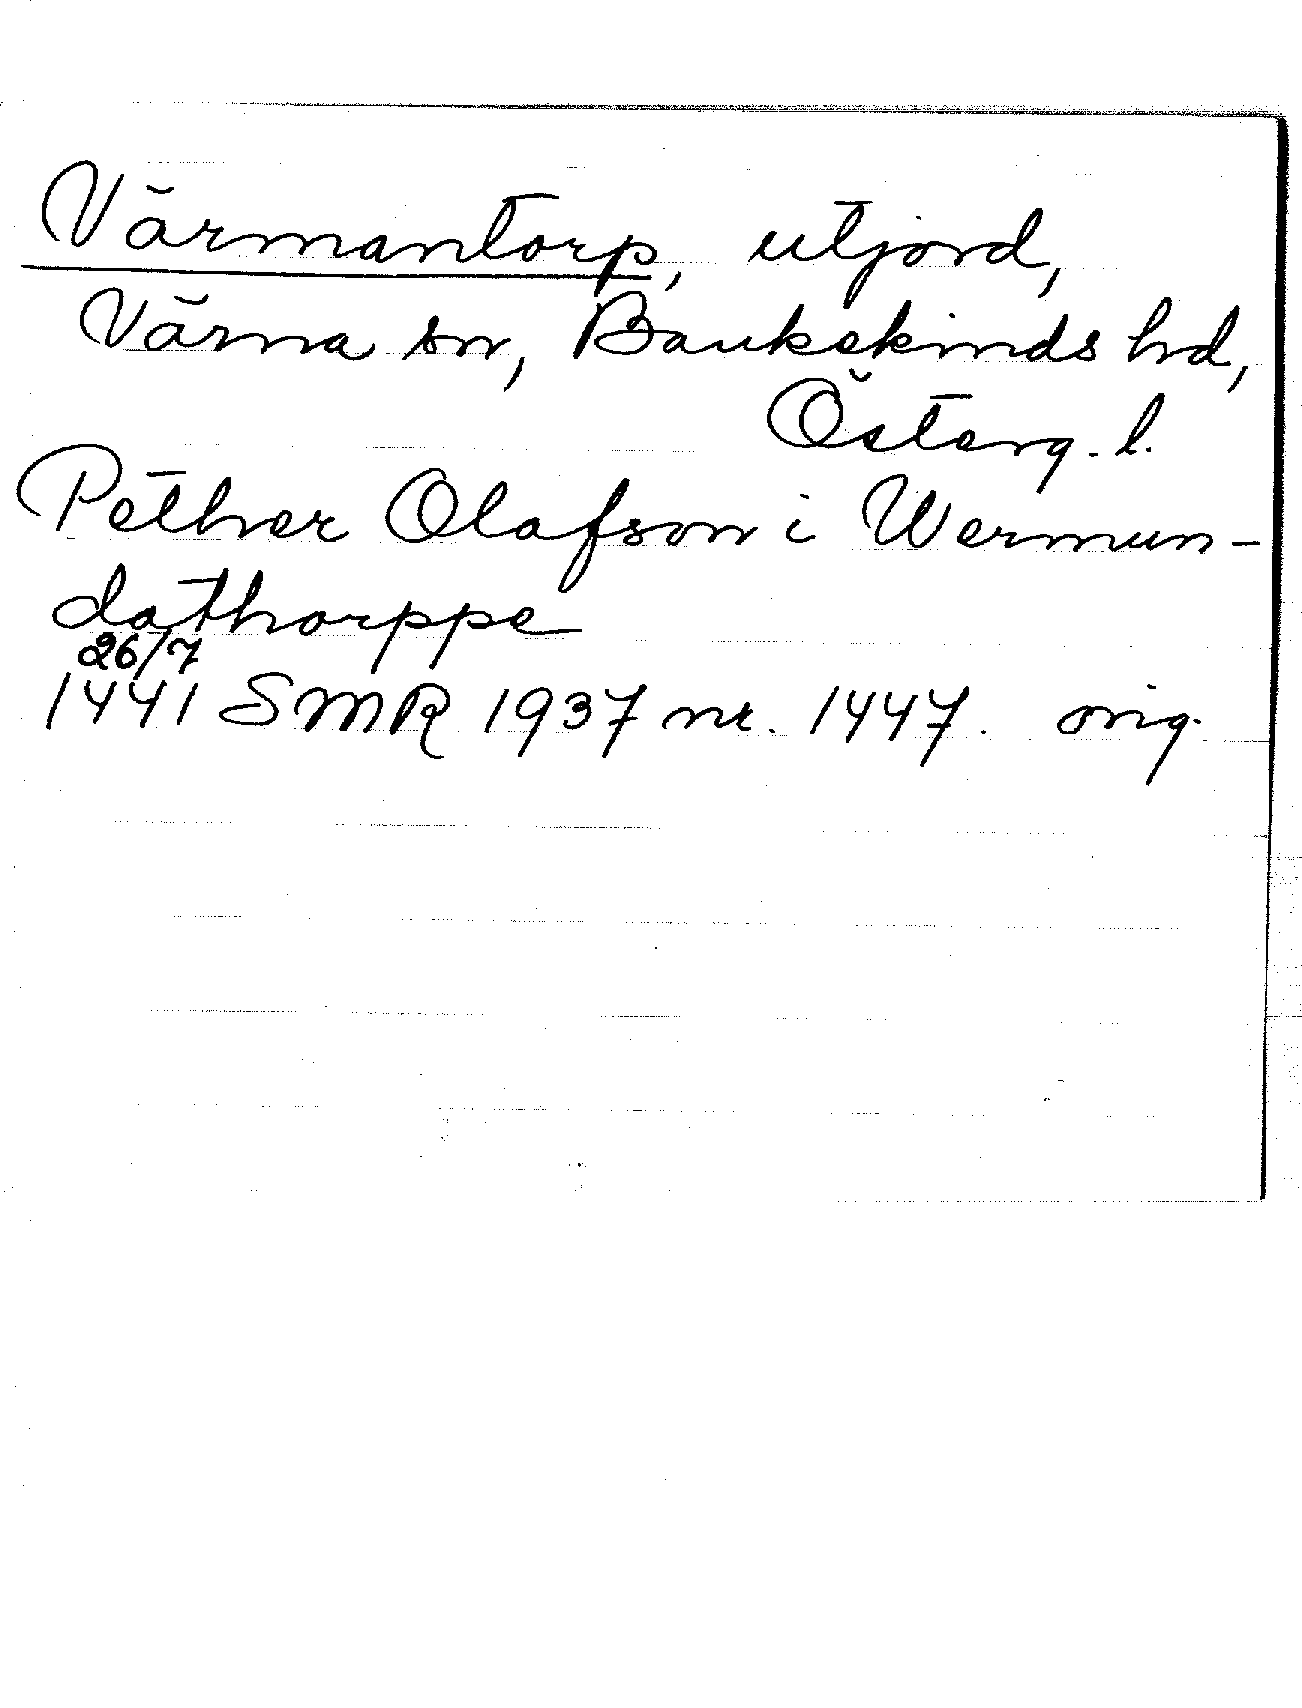 Värmantorp, utjord,
Värna sn, Bankekinds hd,
Österg. l.
Pether Olafson i Wermun-
dathorppe
26/7
1441 SMR 1937 nr. 1447. orig.